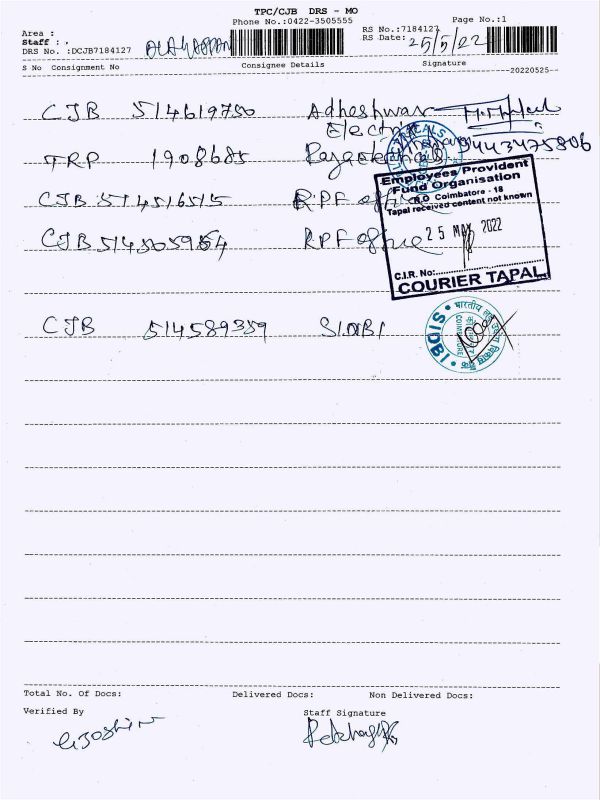 TPC/CJB DRS - MO
Phone No.:0422-3505555
Page No.:1
Area :
Staff : .
DRS No. :DCJB7184127
RS No.:7184127
RS Date: 25/5/22
S No Consignment No Consignee Details Signature
20220525
CJB 514619750 Adheshwar
Electric
TRP 1908685
9443475806
Employees Provident
Fund Organisation
R.O Coimbatore - 18
Tapal received content not known
CJB 514516515 R.P.F office
25 MAY 2022
CJB RPF office
C.I.R. No:
COURIER TAPAL
CJB 514589359 SIDBI
SIDBI
COIMBATORE
Total No. Of Docs: Delivered Docs: Non Delivered Docs:
Verified By Staff Signature